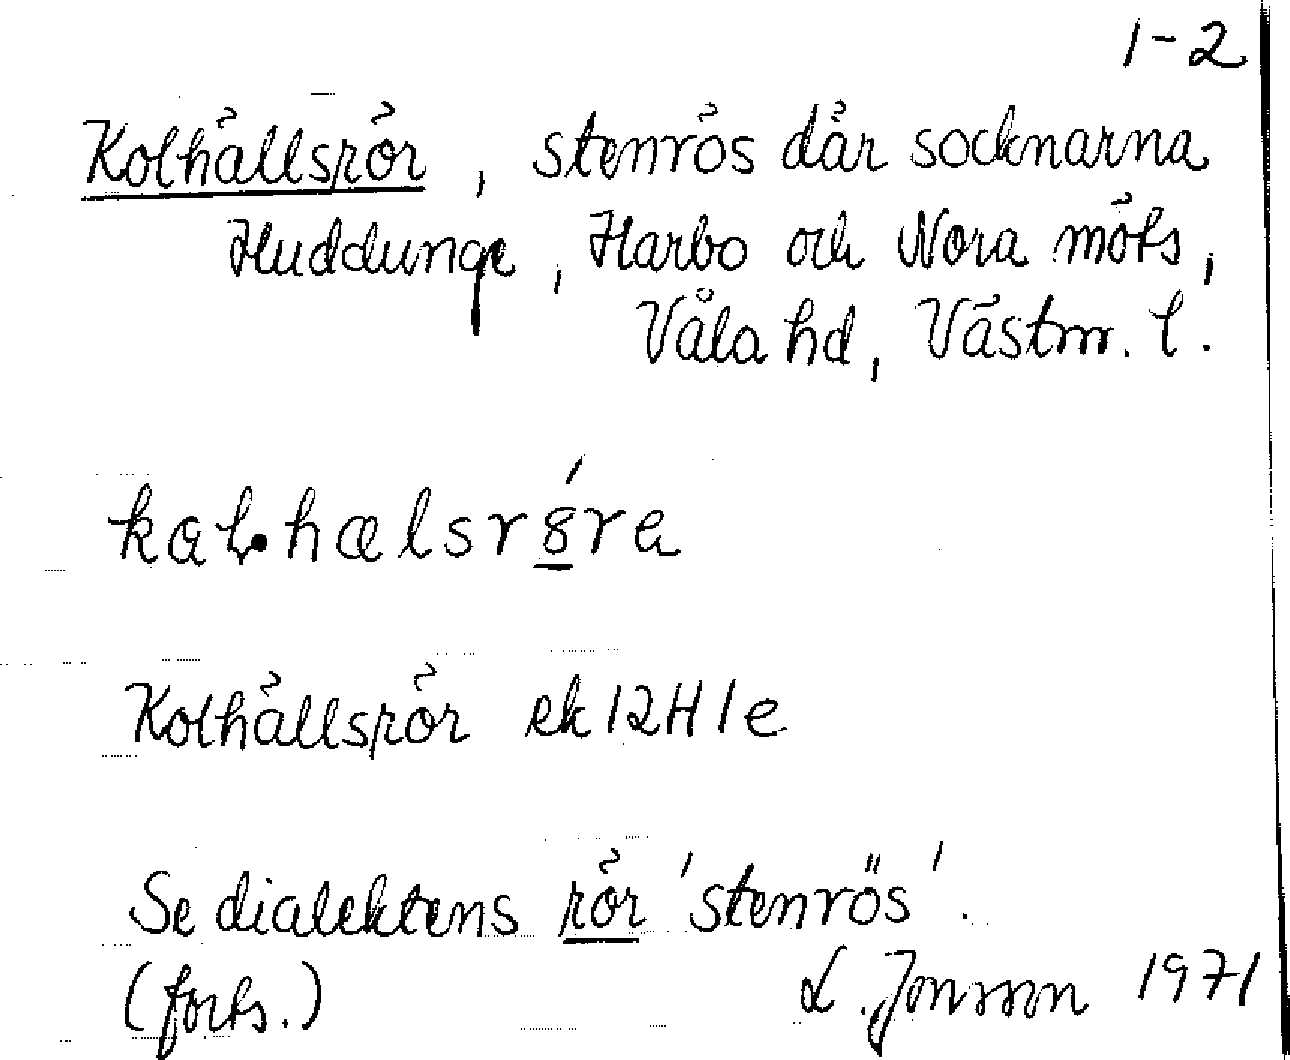 1-2
Kolhällsrör, stenrös där socknarna
Huddunge, Harbo och Nora möts,
Våla hd, Västm. l.
kaɫ•hælsrö́re
Kolhällsrör ek 12H1e
Se dialektens rör 'stenrös'.
(forts.) L. Jonsson 1971